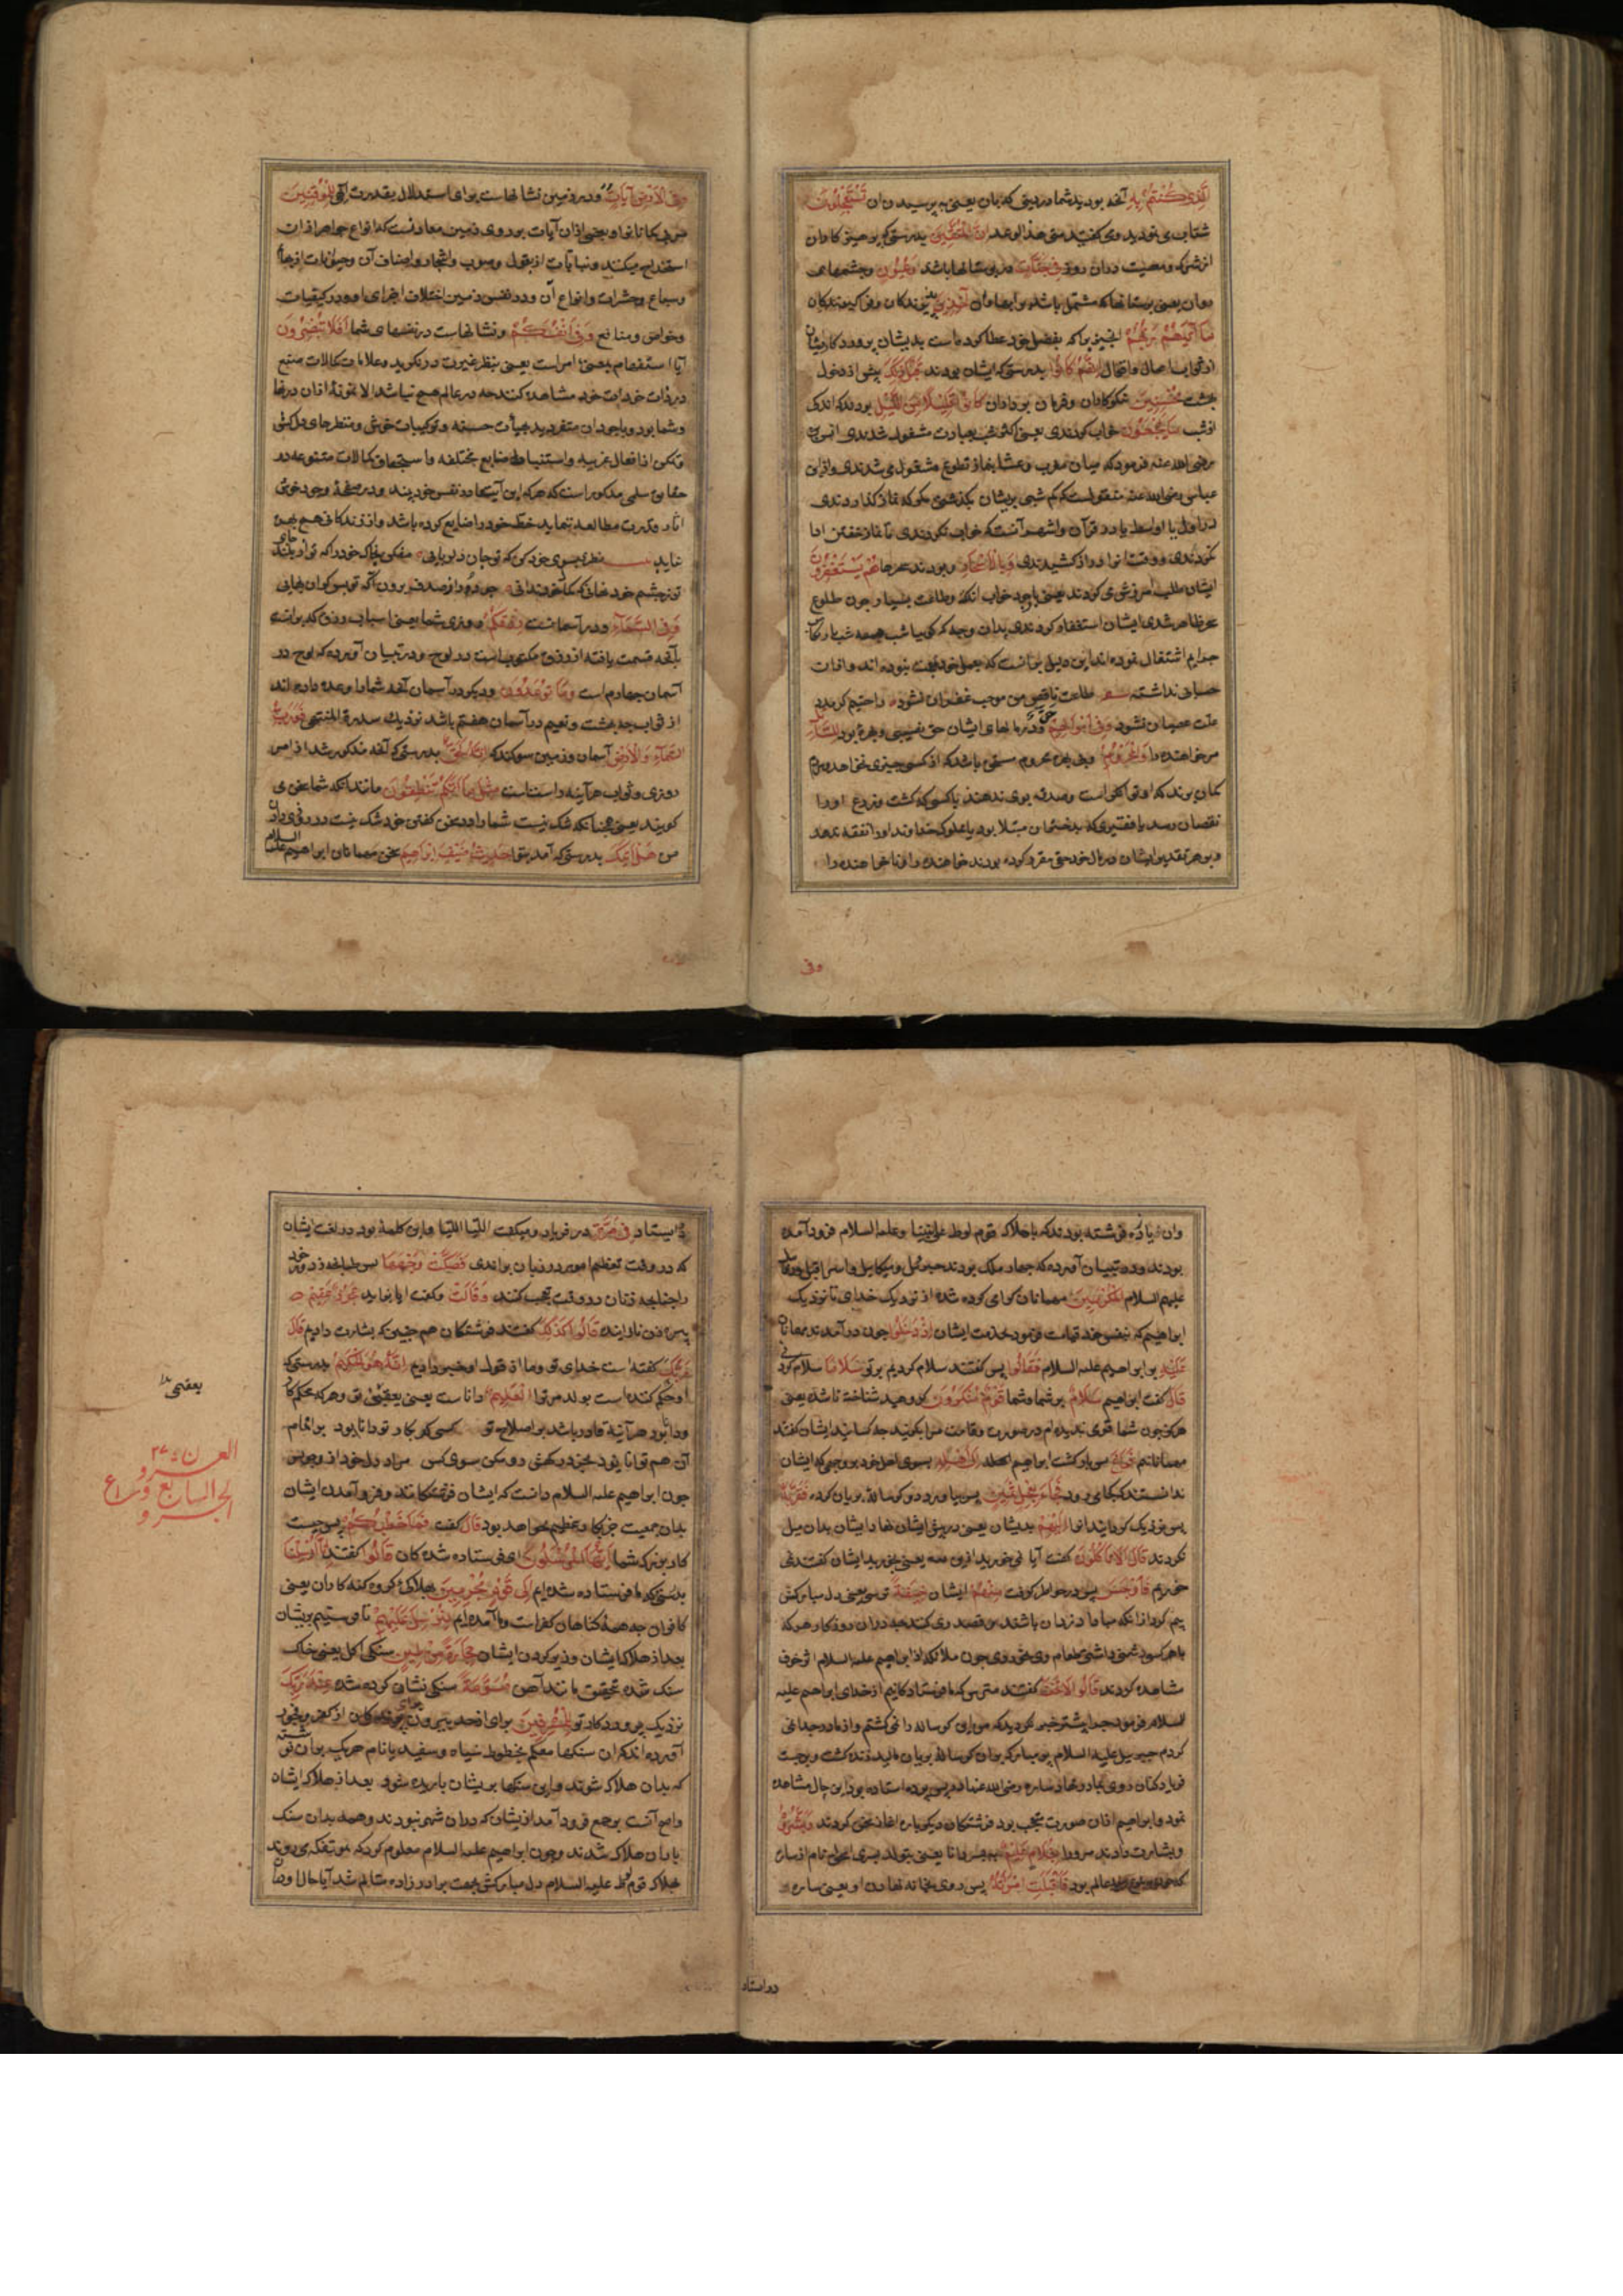 الَّذِی کُنْتُمْ بِهِ آنچه بودید شما در دنیا که بآن یعنی به پرسیدن آن تَسْتَعْجِلُونَ
شتاب می نمودید و می گفتید متی هذا الوعد اِنَّ الْمُتَّقِینَ بدرستی که پرهیز کاران
از شرک و معصیت در آن روز فِی جَنَّاتٍ در بوستانها باشند وَعُیُونٍ و چشمهای
روان یعنی بوستانها که مشتمل باشد بر انهار روان آخِذِینَ
مَا آتٰیهُمْ رَبُّهُمْ انچیزیرا که بفضل خود عطا کرده است بدیشان پروردکار ایشان
اِنَّهُمْ کَانُوا بدرستی که ایشان بودند قَبْلَ ذٰلِکَ پیش از دخول
بهشت مُحْسِنِینَ نیکوکاران و فرمان برداران کَانُوا قَلِیلًا مِنَ اللَّیْلِ بودند که اندک
از شب مَا یَهْجَعُونَ خواب کردندی یعنی اکثر شب بعبادت مشغول شدندی انس
رضی الله عنه فرمود که میان مغرب و عشا بنماز تطوع مشغول می شدندی و از ابن
عباس رضی الله عنه منقول است که کم شبی بریشان بگذشتی مکر که نماز گذاردندی
در اول یا اواسط یا در قرآن و اشهر آنست که خواب نکردندی تا نماز خفتن ادا
نکردندی و وقت انرا دراز کشیدندی وَبِالْاَسْحَارِ و بودند سحرها هُمْ یَسْتَغْفِرُونَ
ایشان طلب امرزش می کردند یعنی باوجود خواب اندک و طاعت بسیار چون طلوع
سحر ظاهر شدی ایشان استغفار کردندی بدان وجه که کویا شب همه شب بارتکاب
جرایم اشتغال نموده اند این دلیل برانست که بعمل خود معجب نبوده اند و ازان
حسابی نداشته شعر طاعت ناقص من موجب غفران نشود راضیم کر مدد
علت عصیان نشود وَفِی اَمْوَالِهِمْ و در مالهای ایشان حق نصیبی و بهره بود لِلسَّائِلِ
مر خواهنده را وَالْمَحْرُومِ و بی بهره محروم مستحق باشد که از کسی چیزی نخواهد مردم
کمان برند که او توانکر است و صدقه بوی ندهند یا کسی که کشت و زرع او را
نقصان رسد یا فقیری که بدختران مبتلا بود یا مملوک خداوند او را نفقه ندهد
و بر هر تقدیر ایشان در مال خود حق مقرر کرده بودند خواهنده و ناخواهنده را
وفی
وَفِی الْاَرْضِ آیَاتٌ و در زمین نشانهاست برای استدلال بقدرت الهی لِلْمُوقِنِینَ
مر بیکمانانرا و بعضی ازان آیات بر روی زمین معادنست که انواع جواهر ازان
استخراج میکنند و نباتات از بقول و حبوب و اشجار و اصناف آن و حیوانات از بهایم
و سباع و حشرات و انواع آن و در نفس زمین اختلاف اجزای او و در کیفیات
و خواص و منافع وَفِی اَنْفُسِکُمْ و نشانهاست در نفسهای شما اَفَلَا تُبْصِرُونَ
آیا استفهام بمعنی امر است یعنی بنظر عبرت در نکرید و علامات کمالات صنع
در ذات خود مشاهده کنند چه در عالم هیچ نباشد الا نمونهٔ ازان در نها
و شما بود و باوجود ان متفردید بهیأت حسنه و ترکیبات خوش و منظرهای دل کش
و تمکن از افعال غریبه و استنباط صنایع مختلفه و استجماع کمالات متنوعه در
حقایق سلمی مذکور است که هر که این آیتها در نفس خود نبیند و در صفحهٔ وجود خویش
آثار قدرت مطالعه ننماید حظ خود را ضایع کرده باشد و از زندکانی هیچ بهره
نیابد نظری بسوی خود کن که تو جان دلربایی مفکن بخاک خود را که تو از بلند جای
تو ز چشم خود نهانی که کمال خود ندانی چو در از صدف برون آ که تو بس کران بهایی
وَفِی السَّمَاءِ و در آسمانست رِزْقُکُمْ روزی شما یعنی اسباب روزی که برات
بآنچه قسمت یافته از رزق مکتوب است در لوح و در تبیان آورده که لوح در
آسمان چهارم است وَمَا تُوعَدُونَ و دیکر در آسمان آنچه شما را وعده داده اند
از ثواب چه بهشت و نعیم در آسمان هفتم باشد نزدیک سدرة المنتهی فَوَرَبِّ
السَّمَاءِ وَالْاَرْضِ آسمان و زمین سوکند که اِنَّهُ لَحَقٌّ بدرستی که آنچه مذکور شد از امر
روزی و ثواب هرآینه راستست مِثْلَ مَا اَنَّکُمْ تَنْطِقُونَ مانند انکه شما سخن می
کویید یعنی همچنانکه شک نیست شما را در سخن گفتن خود شک نیست در روزی دادن
من هَلْ اَتٰیکَ بدرستی که آمد بتو حَدِیثُ ضَیْفِ اِبْرَاهِیمَ سخن مهمانان ابراهیم علیه السلام
وان فرشته بودند که باهلاک قوم لوط علی نبینا و علیه السلام فرود آمده
بودند و در تبیان آورده که چهار ملک بودند جبرئیل و میکاییل و اسرافیل
علیهم السلام الْمُکْرَمِینَ مهمانان کرامی کرده شده از نزدیک خدای تا نزدیک
ابراهیم که بنفس خود قیامت فرمود بخدمت ایشان اِذْ دَخَلُوا چون درآمدند مهمانان
عَلَیْهِ بر ابراهیم علیه السلام فَقَالُوا پس گفتند سلام کردیم بر تو سَلَامًا سلام کردنی
قَالَ گفت ابراهیم سَلَامٌ بر شما و شما قَوْمٌ مُنْکَرُونَ کروهید شناخته نا شده یعنی
هرکز چون شما قومی ندیده ام در صورت و قامت مرا بکویید چه کسانید ایشان گفتند
مهمانانیم فَرَاغَ پس باز کشت ابراهیم اِلٰی اَهْلِهِ بسوی اهل خود بر وجهی که ایشان
ندانستند که کجا می رود فَجَاءَ بِعِجْلٍ سَمِینٍ پس بیاورد کوسالهٔ بریان کرده فَقَرَّبَهُ
پس نزدیک کردانید انرا اِلَیْهِمْ بدیشان یعنی در پیش ایشان نهاد ایشان بدان میل
نکردند قَالَ اَلَا تَأْکُلُونَ گفت آیا نمی خورید ازین یعنی بخورید ایشان گفتند نمی
خوریم فَاَوْجَسَ پس در خاطر کرفت مِنْهُمْ ایشان خِیفَةً ترسی یعنی دل مبارکش
بیم کرد از انکه مبادا دزدان باشند و قصدی کنند چه در ان روزکار هر که
با هر کسی دشمنی داشتی طعام وی نخوردی چون ملائکه از ابراهیم علیه السلام اثر خوف
مشاهده کردند قَالُوا لَا تَخَفْ گفتند مترس که ما فرستادکانیم از خدای ابراهیم علیه
السلام فرمود چرا پیشتر خبر نکردید که من این کوساله را نمی کشتم و از مادر جدا نمی
کردم جبرییل علیه السلام پر مبارک بر ان کوسالهٔ بریان مالید زنده کشت و برجست
فریاد کنان روی بمادر نهاد ساره رضی الله عنها در پس پرده استاده بود این حال مشاهده
نمود و ابراهیم ازان صورت بتعجب بود فرشتکان دیکر باره اغاز سخن کردند وَبَشَّرُوهُ
و بشارت دادند مر او را بِغُلَامٍ عَلِیمٍ بپسر دانا یعنی بتولد پسری اسحق نام از ساره
عالم بود فَاَقْبَلَتِ امْرَاَتُهُ پس روی بخانه نهاد زن او یعنی ساره
در استاد
در ایستاد فِی صَرَّةٍ در فریاد و میگفت اللتیا اللتیا و این کلمهٔ بود در لغت ایشان
که در وقت تعظیم امور بر زبان براندی فَصَکَّتْ وَجْهَهَا پس طپانچه زد روی خود
را چنانچه زنان در وقت تعجب کنند وَقَالَتْ و گفت ایا بزاید عَجُوزٌ عَقِیمٌ
پیره زن نازاینده قَالُوا کَذٰلِکِ گفتند فرشتکان هم چنین که بشارت دادیم قَالَ
رَبُّکِ گفته است خدای تو و ما از قول او خبر دادیم اِنَّهُ هُوَ الْحَکِیمُ بدرستی که
او حکم کننده است بولد مر ترا الْعَلِیمُ دانا است یعنی بعقیمی تو و هر که محکم کار
و دانا بود هرآینه قادر باشد بر اصلاح تو کسی کو بکار تو دانا بود بر اتمام
آن هم توانا بود بجز درکهش رو مکن سوی کس مراد دل خود ازو جوی و بس
چون ابراهیم علیه السلام دانست که ایشان فرشتکانند و فرو آمدن ایشان
بدان جمعیت جز بکار عظیم نخواهد بود قَالَ گفت فَمَا خَطْبُکُمْ پس چیست
کار بزرک شما اَیُّهَا الْمُرْسَلُونَ ای فرستاده شده کان قَالُوا گفتند اِنَّا اُرْسِلْنَا
بدرستی که ما فرستاده شده ایم اِلٰی قَوْمٍ مُجْرِمِینَ بهلاک کروه کنه کاران یعنی
کافران چه همهٔ کناهان کفر است و ما آمده ایم لِنُرْسِلَ عَلَیْهِمْ تا فرستیم بریشان
بعد از هلاک ایشان و زیر کردن ایشان حِجَارَةً مِنْ طِینٍ سنکی از کل یعنی خاک
سنک شده بتحقیق مانند آهن مُسَوَّمَةً سنکی نشان کرده شده عِنْدَ رَبِّکَ
نزدیک پروردکار تو لِلْمُسْرِفِینَ برای از حد بیرون
آورده اند که ان سنکها معلم بخطوط سیاه و سفید یا نام هر یک بر ان نوشته
که بدان هلاک شوند و این سنکها بریشان باریده شود بعد از هلاک ایشان
و اصح آنست بر جمع فرود آمد از یشان که در ان شهر نبودند و همه بدان سنک
باران هلاک شدند و چون ابراهیم علیه السلام معلوم کرد که بمؤتفکه می روند
بهلاک قوم لوط علیه السلام دل مبارکش بجهت برادر زاده متالم شد آیا حال او
بعقیمی
۲۷
الجزو السابع و